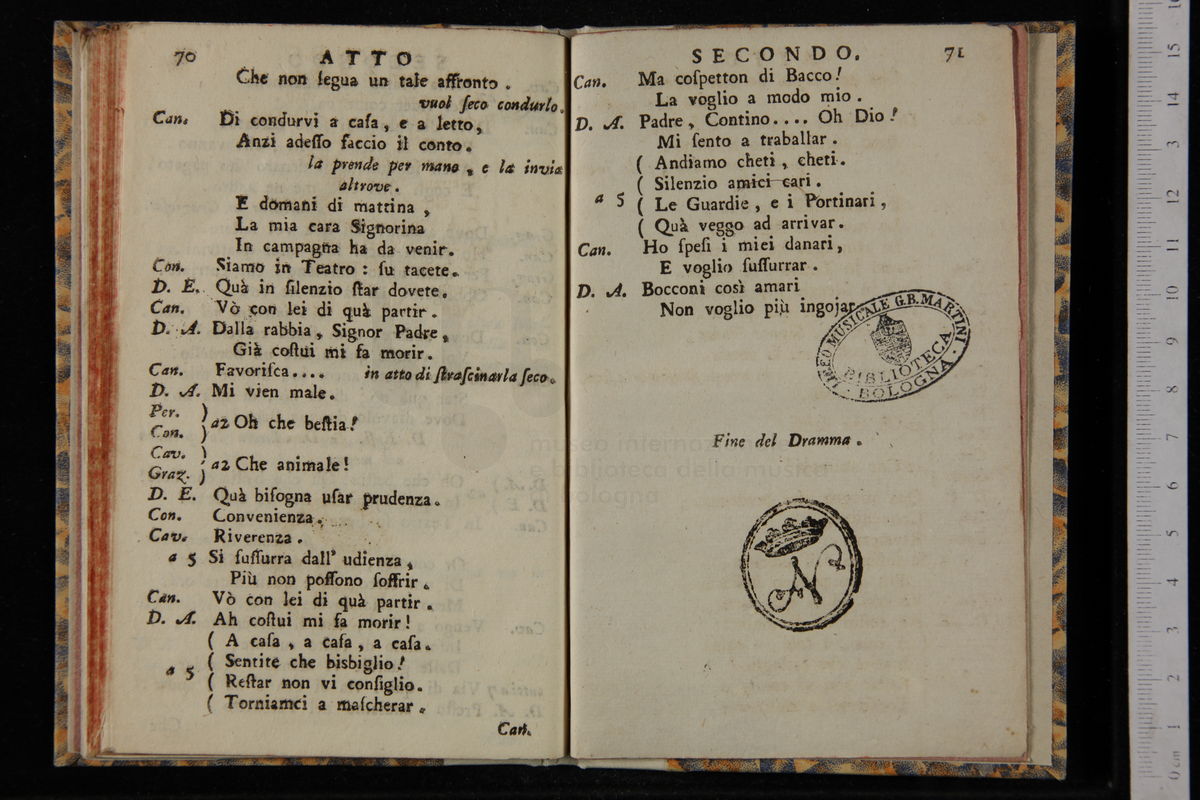 70 ATTO
Che non ſegua un tale affronto.
vuol ſeco condurlo.
Can. Di condurvi a caſa, e a letto,
Anzi adeſſo faccio il conto.
la prende per mano, e la invia
altrove.
E domani di mattina,
La mia cara Signorina
In campagna ha da venir.
Con. Siamo in Teatro: ſu tacete.
D. E. Quà in ſilenzio ſtar dovete.
Can. Vò con lei di quà partir.
D. A. Dalla rabbia, Signor Padre,
Già coſtui mi fa morir.
Can. Favoriſca.... in atto di ſtraſcinarla ſeco.
D. A. Mi vien male.
Per. )
Con. ) a2 Oh che beſtia!
Cav. )
Graz. ) a2 Che animale!
D. E. Quà biſogna uſar prudenza.
Con. Convenienza.
Cav. Riverenza.
a 5 Si ſuſſurra dall' udienza,
Più non poſſono ſoffrir.
Can. Vò con lei di quà partir.
D. A. Ah coſtui mi fa morir!
( A caſa, a caſa, a caſa.
( Sentite che bisbiglio!
a 5 ( Reſtar non vi conſiglio.
( Torniamci a maſcherar.
Can.
SECONDO. 71
Can. Ma coſpetton di Bacco!
La voglio a modo mio.
D. A. Padre, Contino.... Oh Dio!
Mi ſento a traballar.
( Andiamo cheti, cheti.
( Silenzio amici cari.
a 5 ( Le Guardie, e i Portinari,
( Quà veggo ad arrivar.
Can. Ho ſpeſi i miei danari,
E voglio ſuſſurrar.
D. A. Bocconi così amari
Non voglio più ingojar.
LICEO MUSICALE G.B. MARTINI
BIBLIOTECA
BOLOGNA
Fine del Dramma.
museo internazionale
e biblioteca della musica
di bologna
N
0 cm 1 2 3 4 5 6 7 8 9 10 11 12 13 14 15